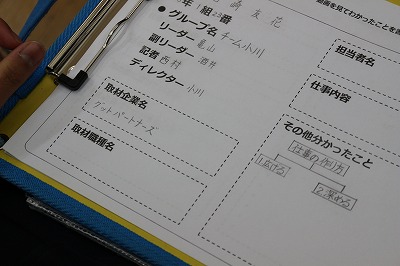 動画を見てわかったことを
崎 友 花
年 組 番
●グループ名 チーム小川
リーダー 亀山
副リーダー 酒井
記者 西村
ディレクター 小川
取材企業名
グットパートナーズ
取材職種名
担当者名
仕事内容
その他分かったこと
仕事の作り方
1.広げる
2.深める